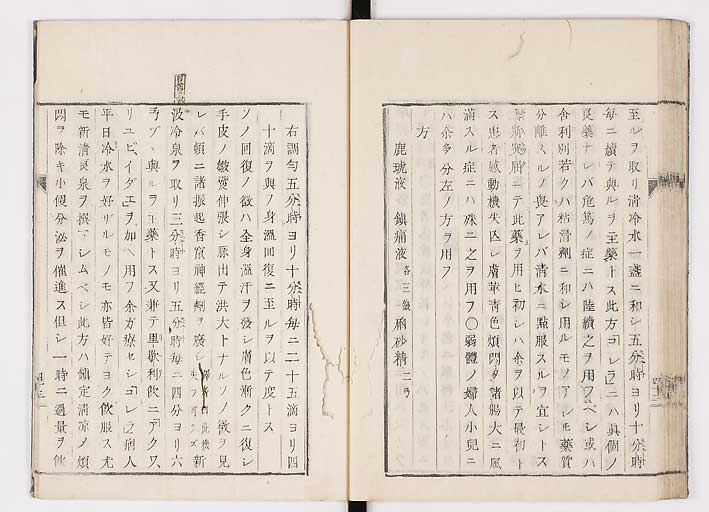 至ルヲ取リ清冷水一盞ニ和シ五分時ヨリ十分時
毎ニ續テ與ルヲ主藥トス此方コレラニハ眞個ノ
良藥ナレバ危篤ノ症ニハ陸續之ヲ用フベシ或ハ
舎利別若クハ粘滑劑ニ和シ用ルモノアレモ藥質
分離スルノ患アレバ清水ニ點服スルヲ宜シトス
ニテ此藥ヲ用ヒ初シハ余ヲ以テ最初ト
ス患者感動機失亾シ膚革青色煩悶ヲ諸腸大ニ風
滿スル症ニハ殊ニ之ヲ用フ〇弱體ノ婦人小兒ニ
ハ余多分左ノ方ヲ用フ
方
鹿琥液 鎮痛液 各三 䃃砂精 二
右調勻五分時ヨリ十分時毎ニ二十五滴ヨリ四
十滴ヲ與ノ身溫回復ニ至ルヲ以テ度トス
ソノ回復ノ徴ハ全身溫汗ヲ發シ膚色漸クニ復シ
手皮ノ皺襞伸張シ脈出テ洪大トナルソノ徴ヲ見
レバ頓ニ諸振起香竄神經劑ヲ廢シ 新
汲冷泉ヲ取リ三分時ヨリ五分時毎ニ四分ヨリ六
ヅヽ與ルヲ主藥トス又兼テ里歇利飲ニアクワ、
リユビイダヱヲ加ヘ用フ余ガ療セシコレラ病人
平日冷水ヲ好ザルモノモ亦皆好テヨク飲服ス尤
モ新清良泉ヲ撰マシムベシ此方ハ鎮定清凉ノ煩
悶ヲ除キ小便分泌ヲ催進ス但シ一時ニ過量ヲ飲